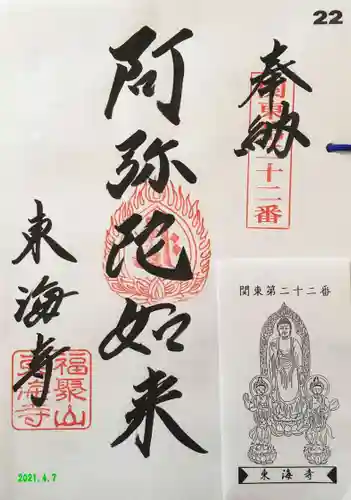 22
奉納
関東第二十二番
阿弥陀如来
東海寺
福聚山
東海寺
2021.4.7
関東第二十二番
東海寺